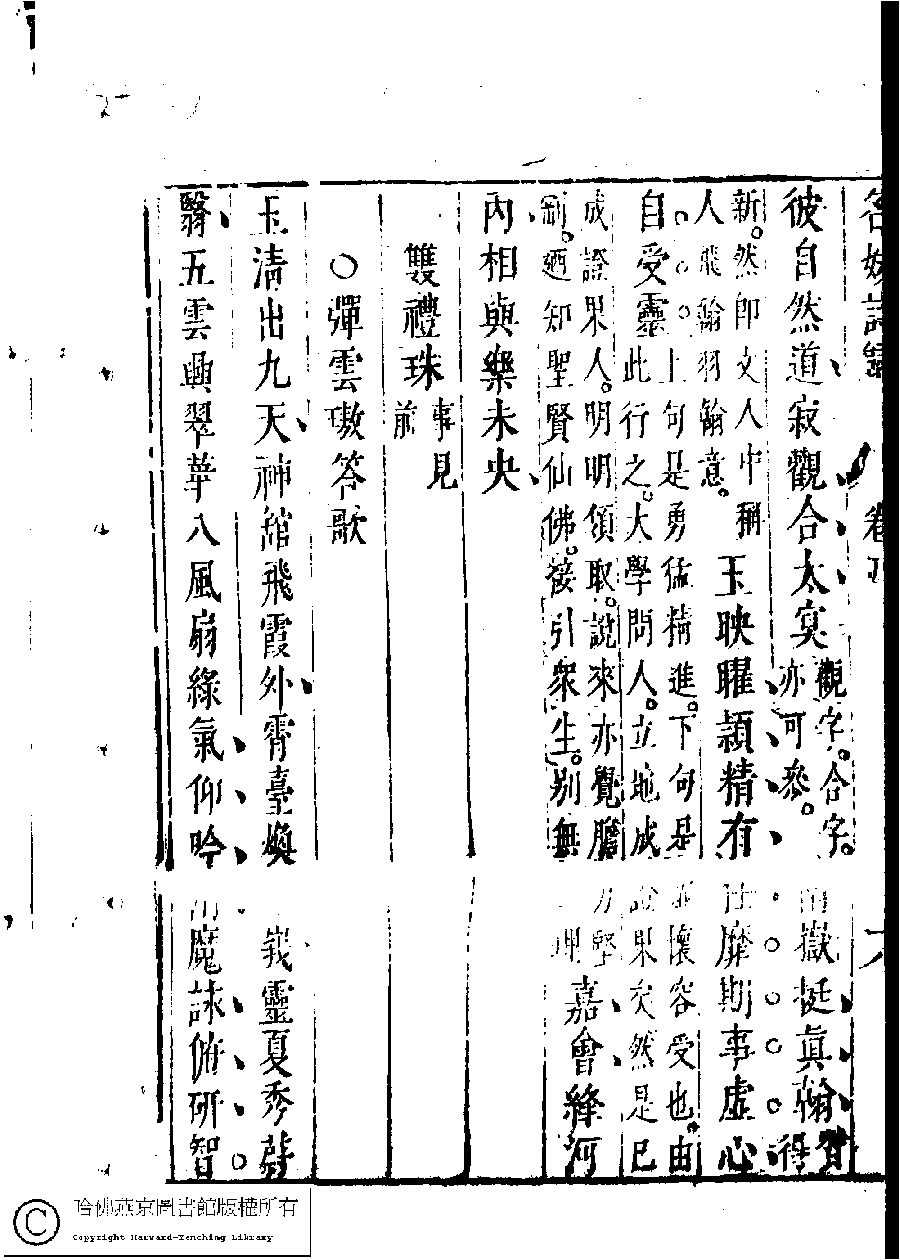 名媛詩歸 卷 六
彼自然道寂觀合太冥
觀字。合字。
亦可參。
嶽挺眞翰
得
新。然即文人中稱
人飛翰羽翰意。
玉映曜頴精有任靡期事虛心
自受靈
上句是勇猛精進。下句是並懷容受也。由
此行之。大學問人。立地成證果矣。然是已
成證果人。明明領取。說來亦覺膽力堅
劑。廼知聖賢仙佛。接引衆生。別無理
嘉會絳河
內相與樂未央
雙禮珠
事見
前
○彈雲璈答歌
玉清出九天神館飛霞外霄臺煥峩靈夏秀蔚
翳五雲興翠華八風扇綠氣仰吟消魔詠俯研智
哈佛燕京圖書館版權所有
Copyright Harvard-Yenching Library